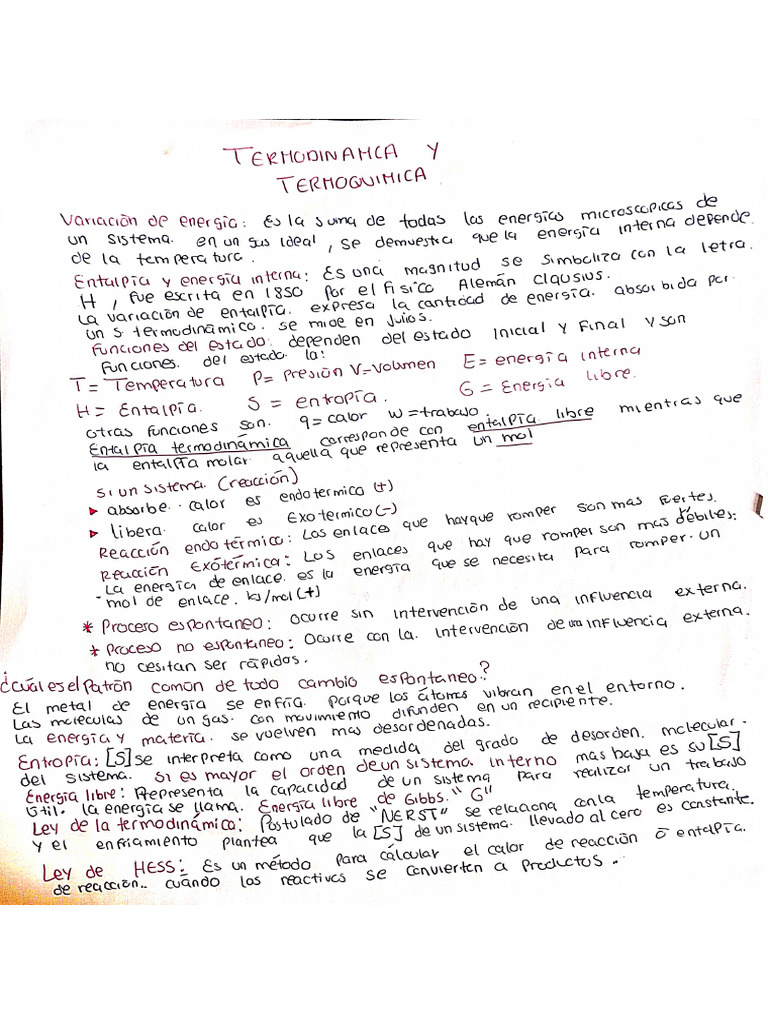 TERMODINAMCA Y
TERMOQUIMICA
Variación de energía: Es la suma de todas las energías microscopicas de
un sistema. en un sus ideal, se demuestra que la energía interna depende
de la temperatura.
Entalpía y energía interna: Es una magnitud se simboliza con la letra.
H, fue escrita en 1850 por el fisico Alemán Clausius.
La variación de entalpía. expresa la cantidad de energía. absorbida por
un s. termodinámico. se mide en Julios.
Funciones del estado: dependen del estado Inicial y Final y son
funciones. del estado la:
T= Temperatura P= Presión V=Volumen E= energía interna
H= Entalpía. S = entropía. G = Energía libre.
otras funciones son. q=calor w=trabajo
Entalpía termodinámica corresponde con entalpía libre mientras que
la entalpía molar aquella que representa un mol
Si un sistema (reacción)
▸ absorbe. calor es endotermico (+)
▸ libera. calor es Exotermico (-)
Reacción endotérmico: Los enlaces que hay que romper son mas fuertes.
Reacción Exótermica: Los enlaces que hay que romper son mas débiles.
- La energía de enlace. es la energía que se necesita para romper. un
mol de enlace. kJ/mol (+)
* Proceso espontaneo: ocurre sin intervención de una influencia externa.
* Proceso no espontaneo: Ocurre con la. Intervención de una influencia externa.
no cesitan ser rápidos.
¿Cuál es el Patrón común de todo cambio espontaneo?
El metal de energía se enfría. Porque los átomos vibran en el entorno.
Las moleculas de un gas. con movimiento difunden en un recipiente.
La energía y materia. se vuelven mas desordenadas.
Entropía: [S] se interpreta como una medida del grado de desorden. molecular.
del sistema. Si es mayor el orden de un sistema. interno mas baja es su [S]
Energía libre: Representa la capacidad de un sistema para realizar un trabajo
Útil. la energía se llama. Energía libre de Gibbs. "G"
Ley de la termodinámica: Postulado de "NERST" se relaciona con la temperatura.
y el enfriamiento plantea que la [S] de un sistema. llevado al cero es constante.
Ley de HESS: Es un método para cálcular el calor de reacción ó entalpía.
de reacción.. cuándo los reactivos se convierten a Productos.